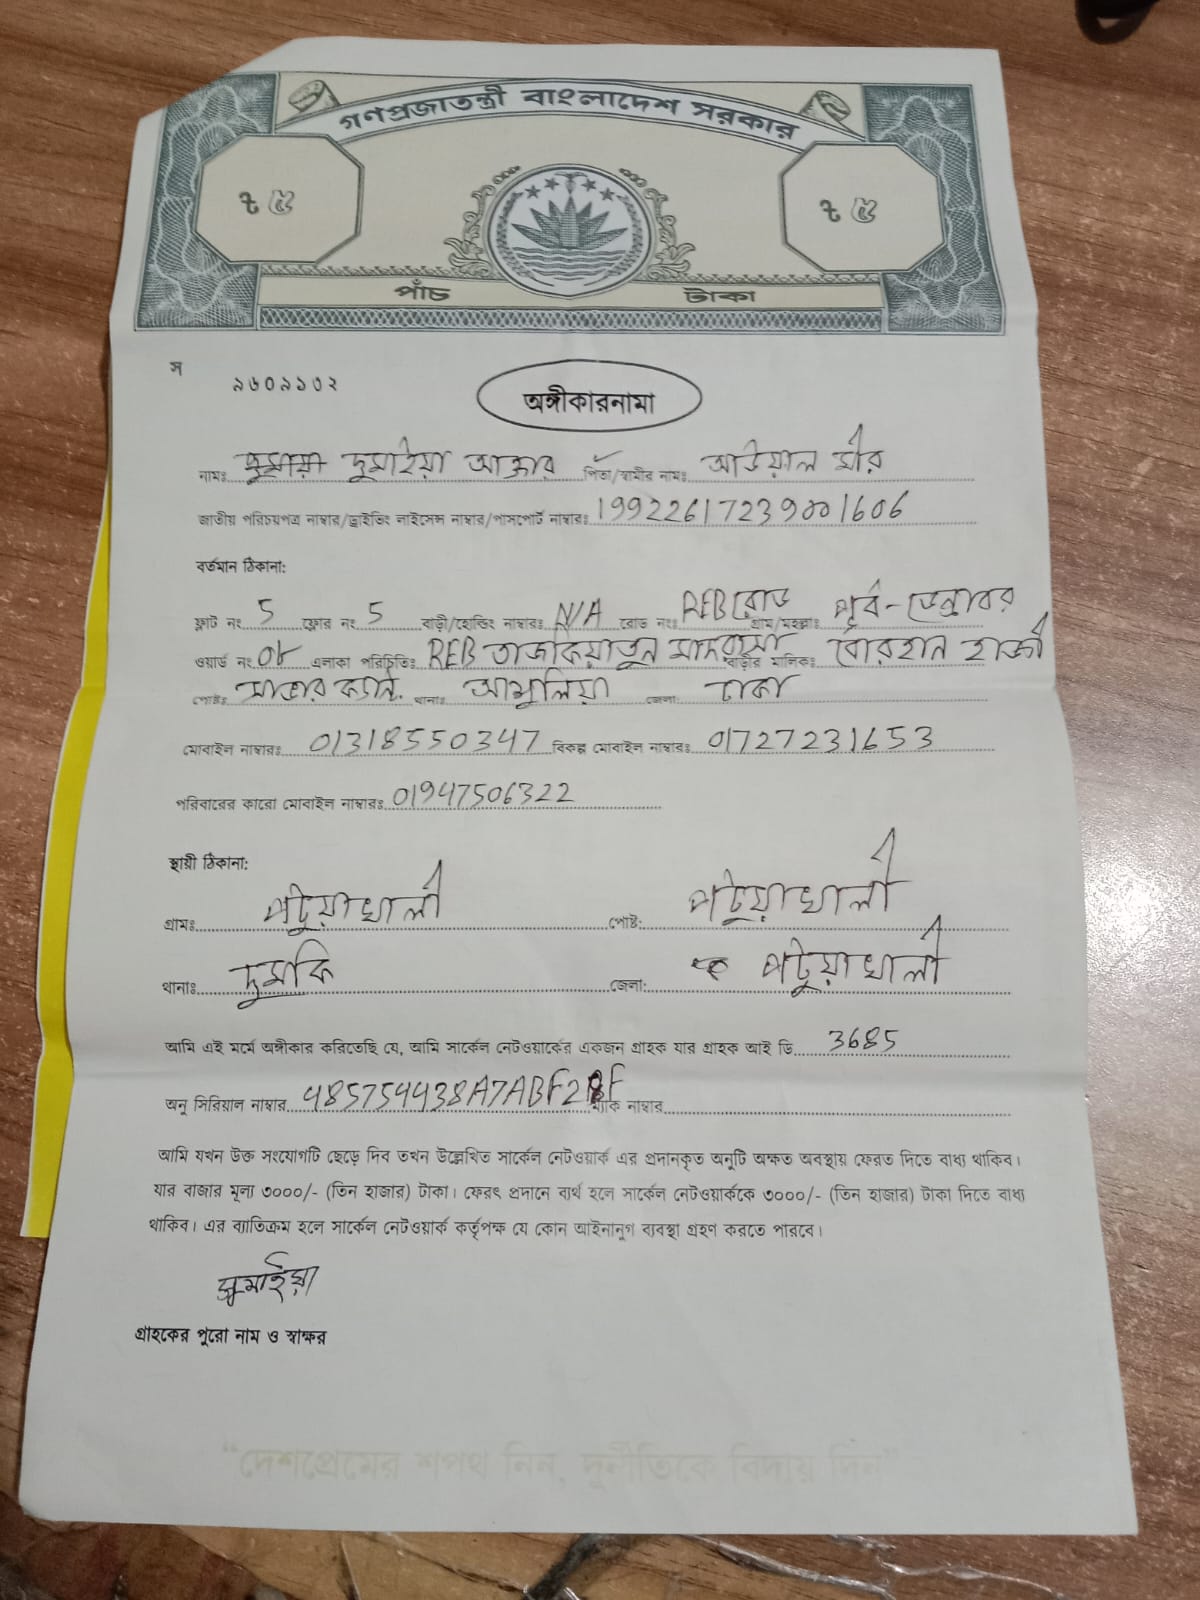 গণপ্রজাতন্ত্রী বাংলাদেশ সরকার
৳ ৫ ৳ ৫
পাঁচ টাকা
স ৯৬০৯১০২
অঙ্গীকারনামা
নামঃ সুমাইয়া আক্তার পিতা/স্বামীর নামঃ আউয়াল মীর
জাতীয় পরিচয়পত্র নাম্বার/ড্রাইভিং লাইসেন্স নাম্বার/পাসপোর্ট নাম্বারঃ 19922617239001606
বর্তমান ঠিকানা:
ফ্লাট নং 5 ফ্লোর নং 5 বাড়ী/হোল্ডিং নাম্বারঃ N/A রোড নং REB রোড গ্রাম/মহল্লাঃ পূর্ব-ডেন্ডাবর
ওয়ার্ড নং 08 এলাকা পরিচিতি: REB তাজকিয়াতুল মাদরাসা বাড়ীর মালিক: বোরহান হাজী
পোষ্টঃ সাভার ক্যান্ট. থানাঃ আশুলিয়া জেলা: ঢাকা
মোবাইল নাম্বারঃ 01318550347 বিকল্প মোবাইল নাম্বারঃ 01727231653
পরিবারের কারো মোবাইল নাম্বারঃ 01947506322
স্থায়ী ঠিকানা:
গ্রামঃ পটুয়াখালী পোষ্ট: পটুয়াখালী
থানাঃ দুমকি জেলা: পটুয়াখালী
আমি এই মর্মে অঙ্গীকার করিতেছি যে, আমি সার্কেল নেটওয়ার্কের একজন গ্রাহক যার গ্রাহক আই ডি 3685
অনু সিরিয়াল নাম্বার 485754438A7ABF2BF ম্যাক নাম্বার
আমি যখন উক্ত সংযোগটি ছেড়ে দিব তখন উল্লেখিত সার্কেল নেটওয়ার্ক এর প্রদানকৃত অনুটি অক্ষত অবস্থায় ফেরত দিতে বাধ্য থাকিব।
যার বাজার মূল্য ৩০০০/- (তিন হাজার) টাকা। ফেরৎ প্রদানে ব্যর্থ হলে সার্কেল নেটওয়ার্ককে ৩০০০/- (তিন হাজার) টাকা দিতে বাধ্য
থাকিব। এর ব্যতিক্রম হলে সার্কেল নেটওয়ার্ক কর্তৃপক্ষ যে কোন আইনানুগ ব্যবস্থা গ্রহণ করতে পারবে।
সুমাইয়া
গ্রাহকের পুরো নাম ও স্বাক্ষর
"দেশপ্রেমের শপথ নিন, দুর্নীতিকে বিদায় দিন"